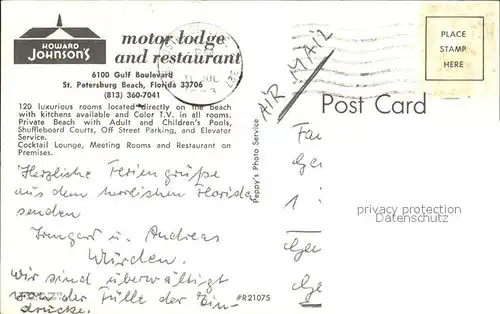 HOWARD
JOHNSON'S
motor lodge
and restaurant
6100 Gulf Boulevard
St. Petersburg Beach, Florida 33706
(813) 360-7041
120 luxurious rooms located directly on the beach
with kitchens available and Color T.V. in all rooms.
Private Beach with Adult and Children's Pools,
Shuffleboard Courts, Off Street Parking, and Elevator
Service.
Cocktail Lounge, Meeting Rooms and Restaurant on
Premises.
Herzliche Feriengrüße
aus dem herrlichen Florida
senden
Irmgard u. Andreas
Würden.
Wir sind überwältigt
von der Fülle der Ein-
drücke.
#R21075
Peppy's Photo Service
AIR MAIL
PLACE
STAMP
HERE
Post Card
privacy protection
Datenschutz